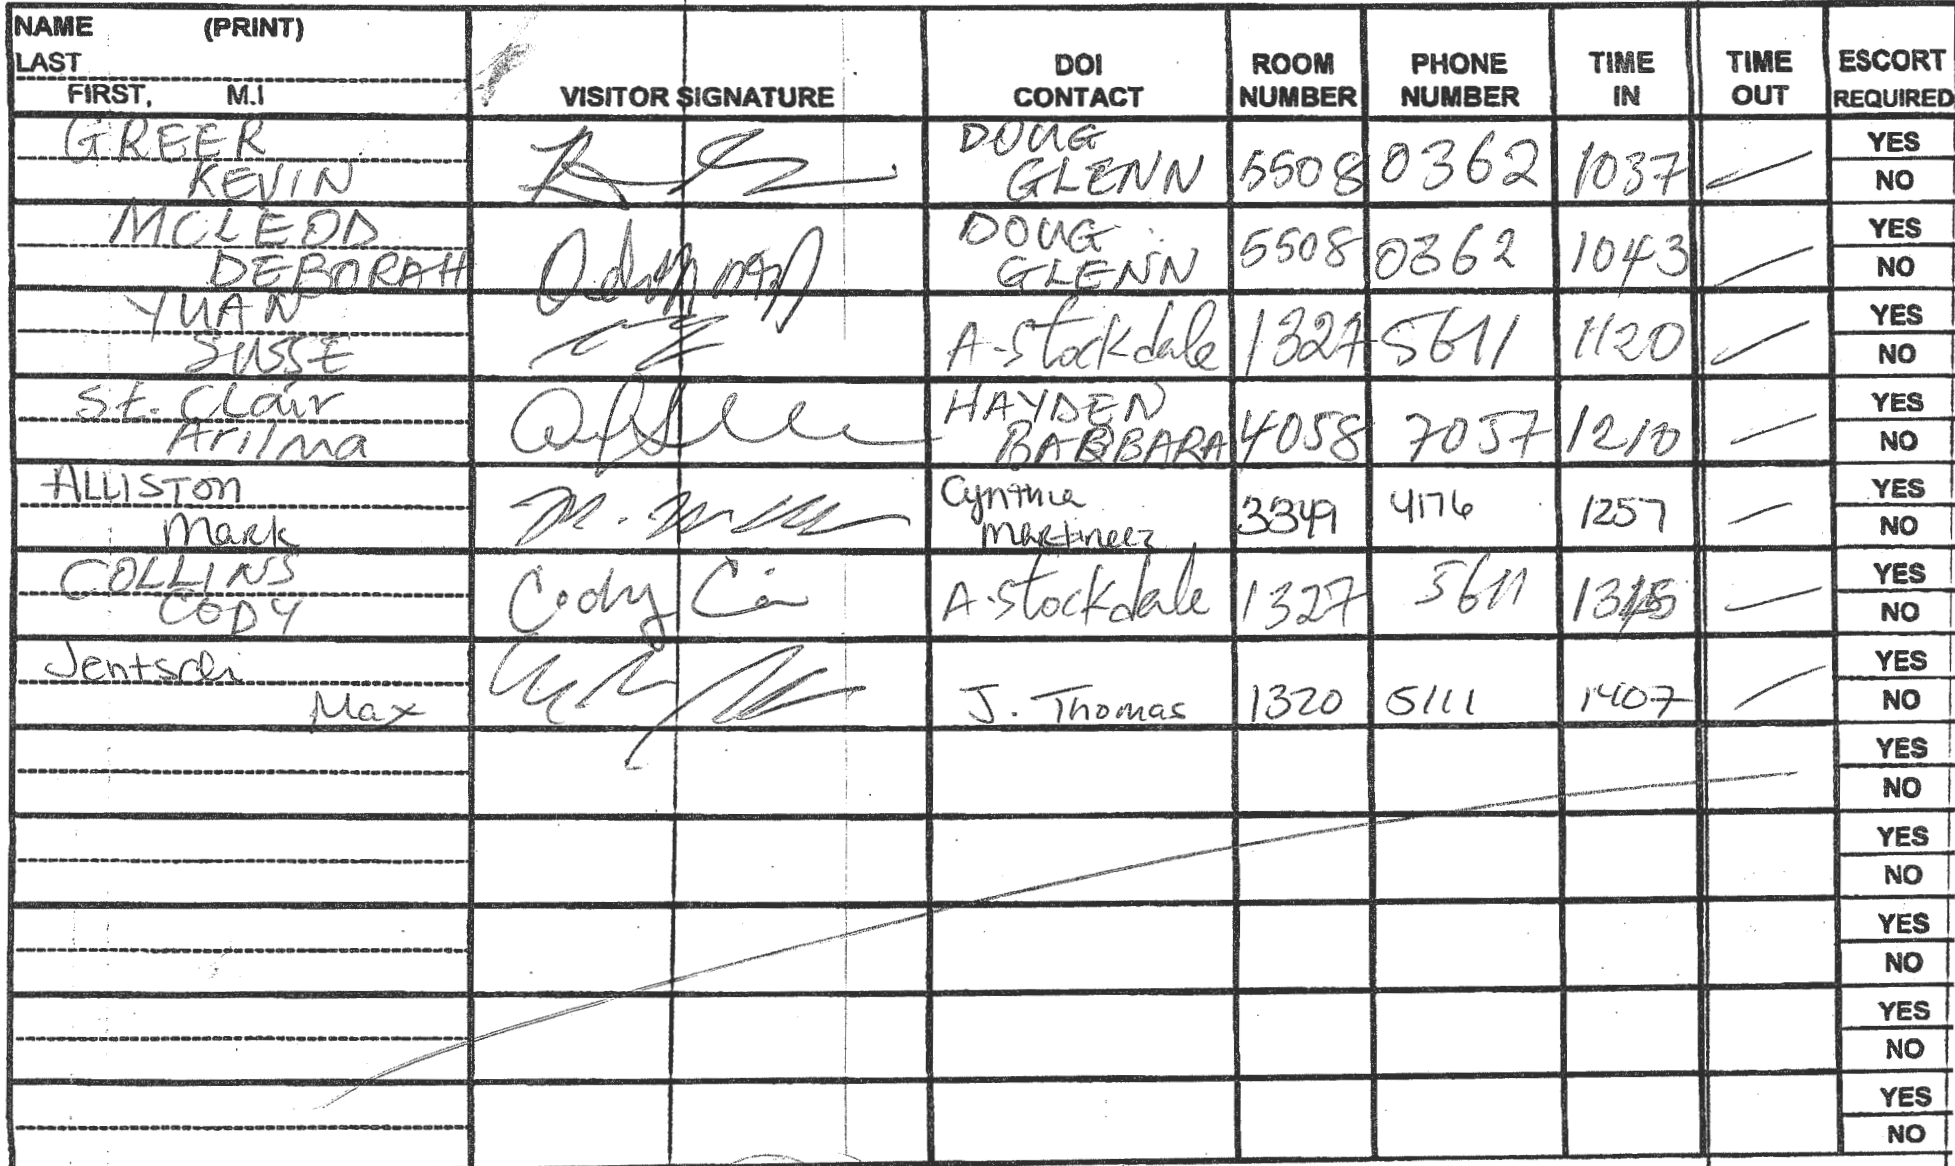 NAME (PRINT)
LAST
FIRST, M.I
VISITOR SIGNATURE
DOI
CONTACT
ROOM
NUMBER
PHONE
NUMBER
TIME
IN
TIME
OUT
ESCORT
REQUIRED
GREER
KEVIN
DOUG
GLENN
5508 0362 1037
YES
NO
MCLEOD
DEBORAH
DOUG
GLENN
5508 0362 1043
YES
NO
YUAN
SUSIE
A. Stockdale 1327 5611 1120
YES
NO
St. Clair
Arilma
HAYDEN
BARBARA
4058 7057 1210
YES
NO
ALLISTON
Mark
Cynthia
Martineez
3349 4176 1257
YES
NO
COLLINS
CODY
Cody
A. Stockdale 1327 5611
YES
NO
Max
J. Thomas 1320 5111 1407
YES
NO
YES
NO
YES
NO
YES
NO
YES
NO
YES
NO